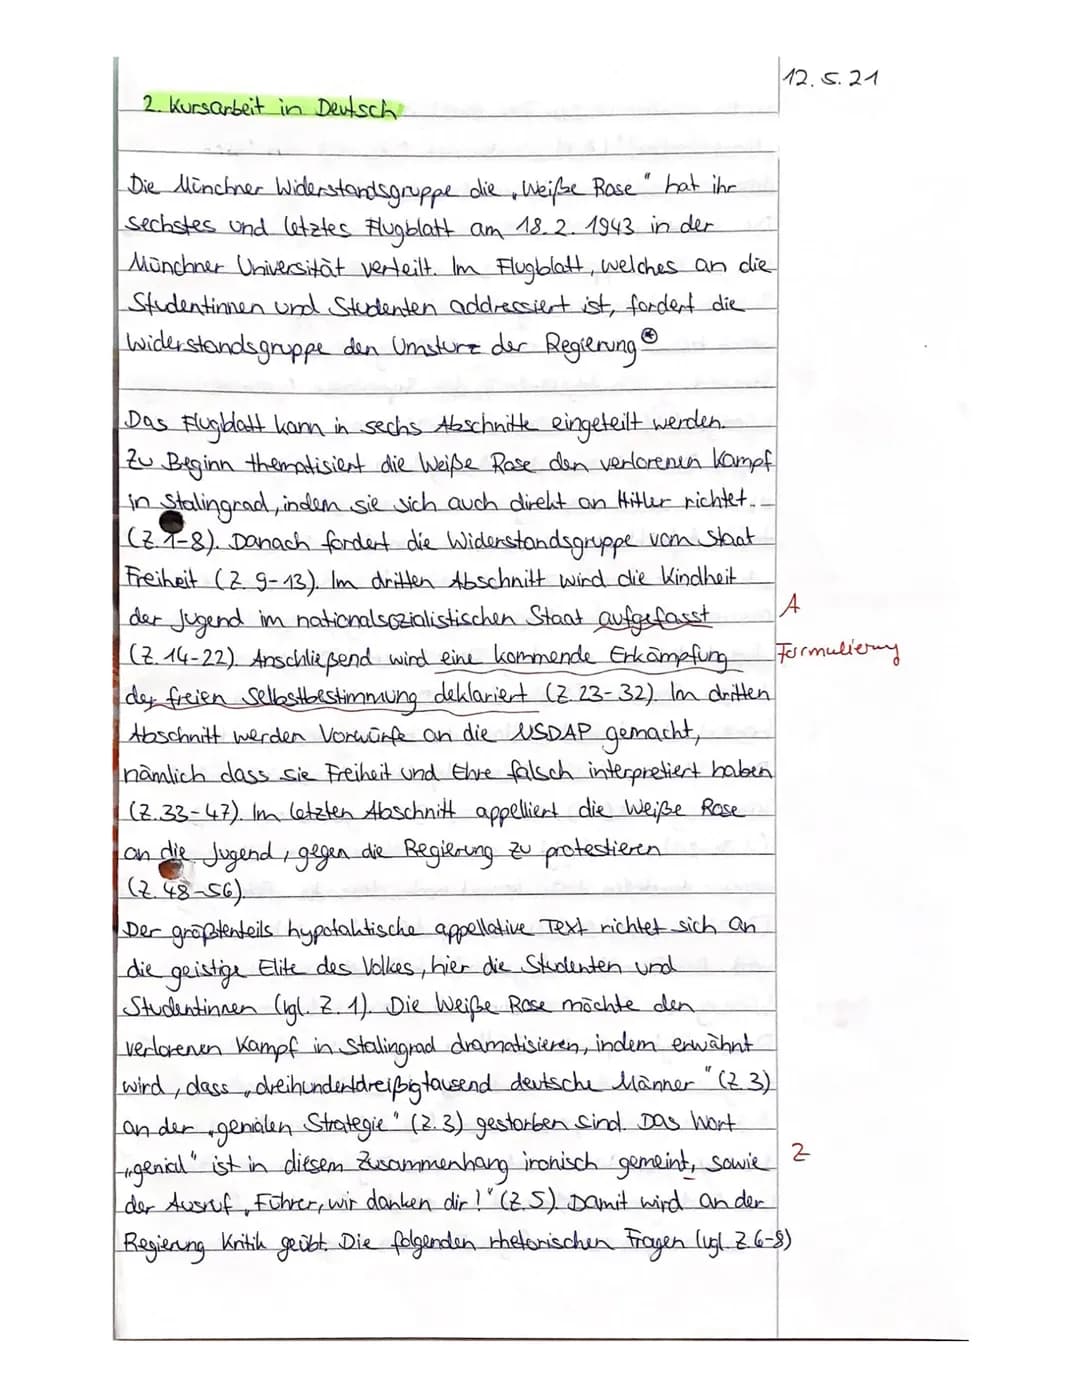 12.5.21
2. Kursarbeit in Deutsch
Die Münchner Widerstandsgruppe die „Weiße Rose" hat ihr
sechstes und letztes Flugblatt am 18.2.1943 in der
Münchner Universität verteilt. Im Flugblatt, welches an die
Studentinnen und Studenten addressiert ist, fordert die
Widerstandsgruppe den Umsturz der Regierung
Das Flugblatt kann in sechs Abschnitte eingeteilt werden.
Zu Beginn thematisiert die Weiße Rose den verlorenen Kampf
in Stalingrad, indem sie sich auch direkt an Hitler richtet.
(Z.1-8). Danach fordert die Widerstandsgruppe vom Staat
Freiheit (Z. 9-13). Im dritten Abschnitt wird die Kindheit
der Jugend im nationalsozialistischen Staat aufgefasst A
(Z.14-22). Anschließend wird eine kommende Erkämpfung Formulierung
der freien Selbstbestimmung deklariert (Z.23-32). Im dritten
Abschnitt werden Vorwürfe an die NSDAP gemacht,
nämlich dass sie Freiheit und Ehre falsch interpretiert haben
(Z.33-47). Im letzten Abschnitt appelliert die Weiße Rose
an die Jugend, gegen die Regierung zu protestieren
(Z. 48-56).
Der größtenteils hypotaktische appellative Text richtet sich an
die geistige Elite des Volkes, hier die Studenten und
Studentinnen (vgl. Z. 1). Die Weiße Rose möchte den
verlorenen Kampf in Stalingrad dramatisieren, indem erwähnt
wird, dass „dreihundertdreißigtausend deutsche Männer" (Z.3)
an der „genialen Strategie" (Z.3) gestorben sind. Das Wort
„genial" ist in diesem Zusammenhang ironisch gemeint, sowie Z
der Ausruf „Führer, wir danken dir!" (Z.5). Damit wird an der
Regierung Kritik geübt. Die folgenden rhetorischen Fragen (vgl. Z.6-8)